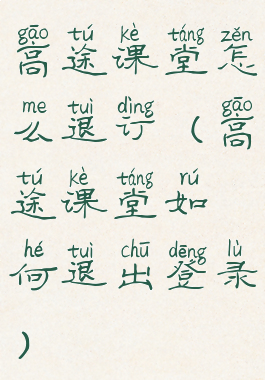 gāo tú kè táng zěn
高途课堂怎
me tuì dìng gāo
么退订（高
tú kè táng rú
途课堂如
hé tuì chū dēng lù
何退出登录
）